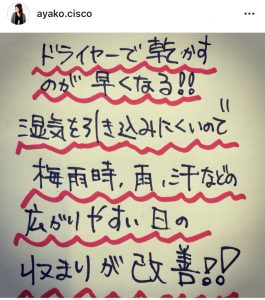 ayako.cisco
ドライヤーで乾かす
のが早くなる!!
湿気を引き込みにくいので"
梅雨時,雨,汗などの
広がりやすい日の
収まりが改善!!